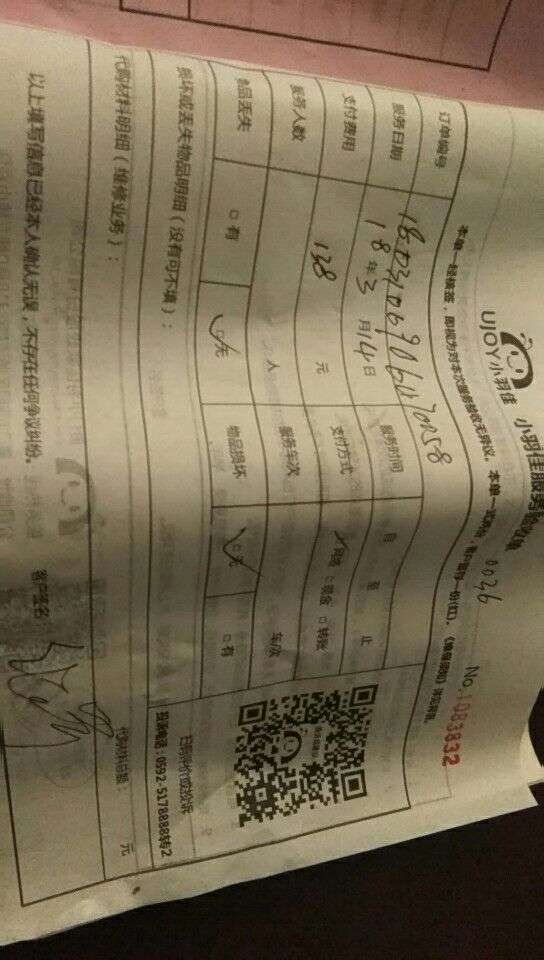 UJOY小羽佳 小羽佳服务验收单
0036 No.1083832
本单一经核签，即视为对本次服务验收无异议。本单一式两份，客户留存一份(红)，
订单编号
服务日期 18年3月14日 服务时间 自 至 止
支付费用 138 元 支付方式 网络 现金 转账
服务人数 人 服务车次 车/次
物品丢失 有 无 物品损坏 无 有
扫码评价或投诉
投诉电话：0592-5178888转2
损坏或丢失物品明细（没有可不填）：
代购材料明细（维修业务）：
代购材料总额： 元
以上填写信息已经本人确认无误，不存在任何争议纠纷。 客户签名